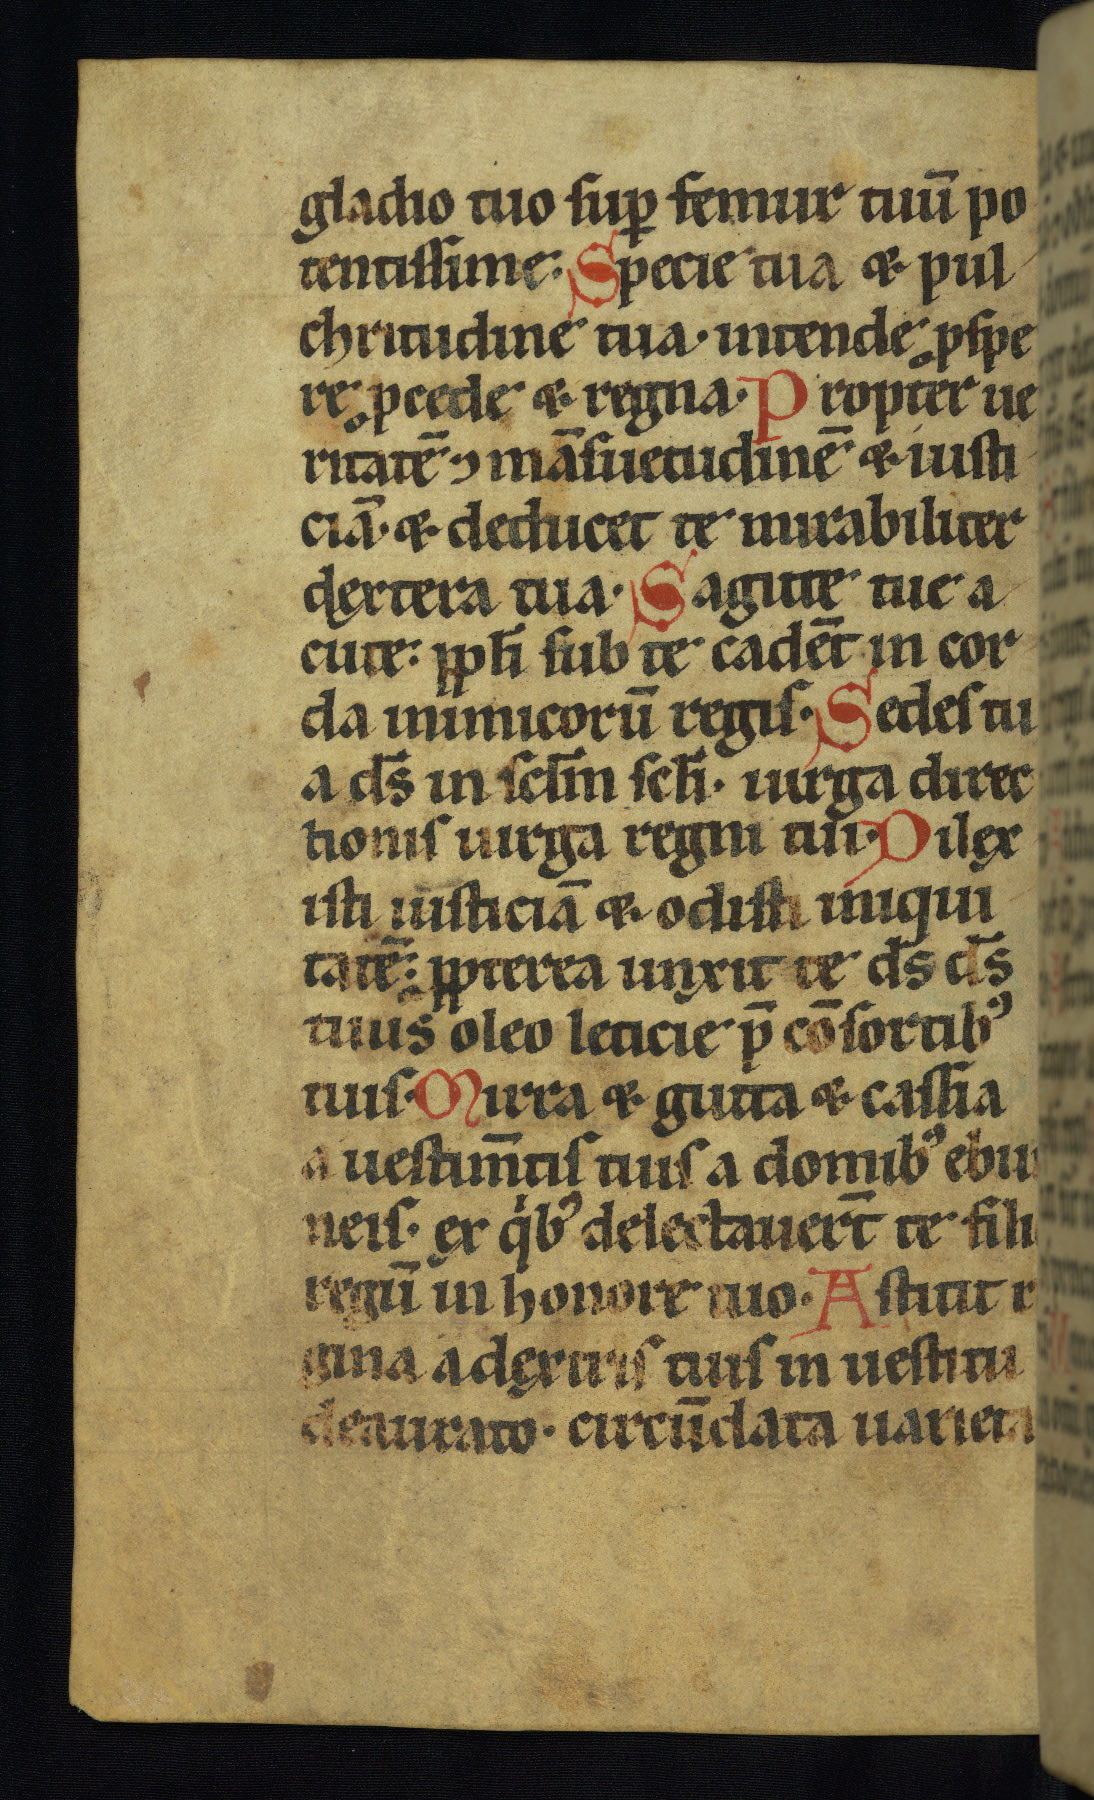 gladio tuo suꝑ femur tuū po
tentissime: Specie tua & pul
chritudine tua· intende ꝓspe
re ꝓcede & regna· Propter ue
ritatē ⁊ māsuetudinē & iusti
ciā· & deducet te mirabiliter
dextera tua· Sagitte tue a
cute: ppłi sub te cadēt in cor
da inimicorū regis· Sedes tu
a dс̄ in scłm scłi· uirga direc
tionis uirga regni tui· Dilex
isti iusticiā & odisti iniqui
tatē: ꝓpterea unxit te ds̄ ds̄
tuus oleo leticie p̄ cōsortibꝰ
tuis· Mirra & gutta & cassia
a uestim̄tis tuis a domibꝰ ebur
neis· ex qͥbꝰ delectauer̄t te filie
regū in honore tuo· Astitit re
gina a dextris tuis in uestitu
deaurato· circūdata uarieta